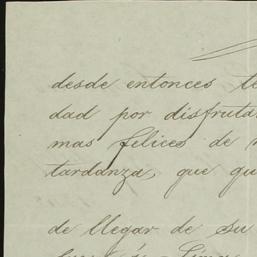 desde entonces te
dad por disfruta
mas felices de
tardanza, que qu
de llegar de su